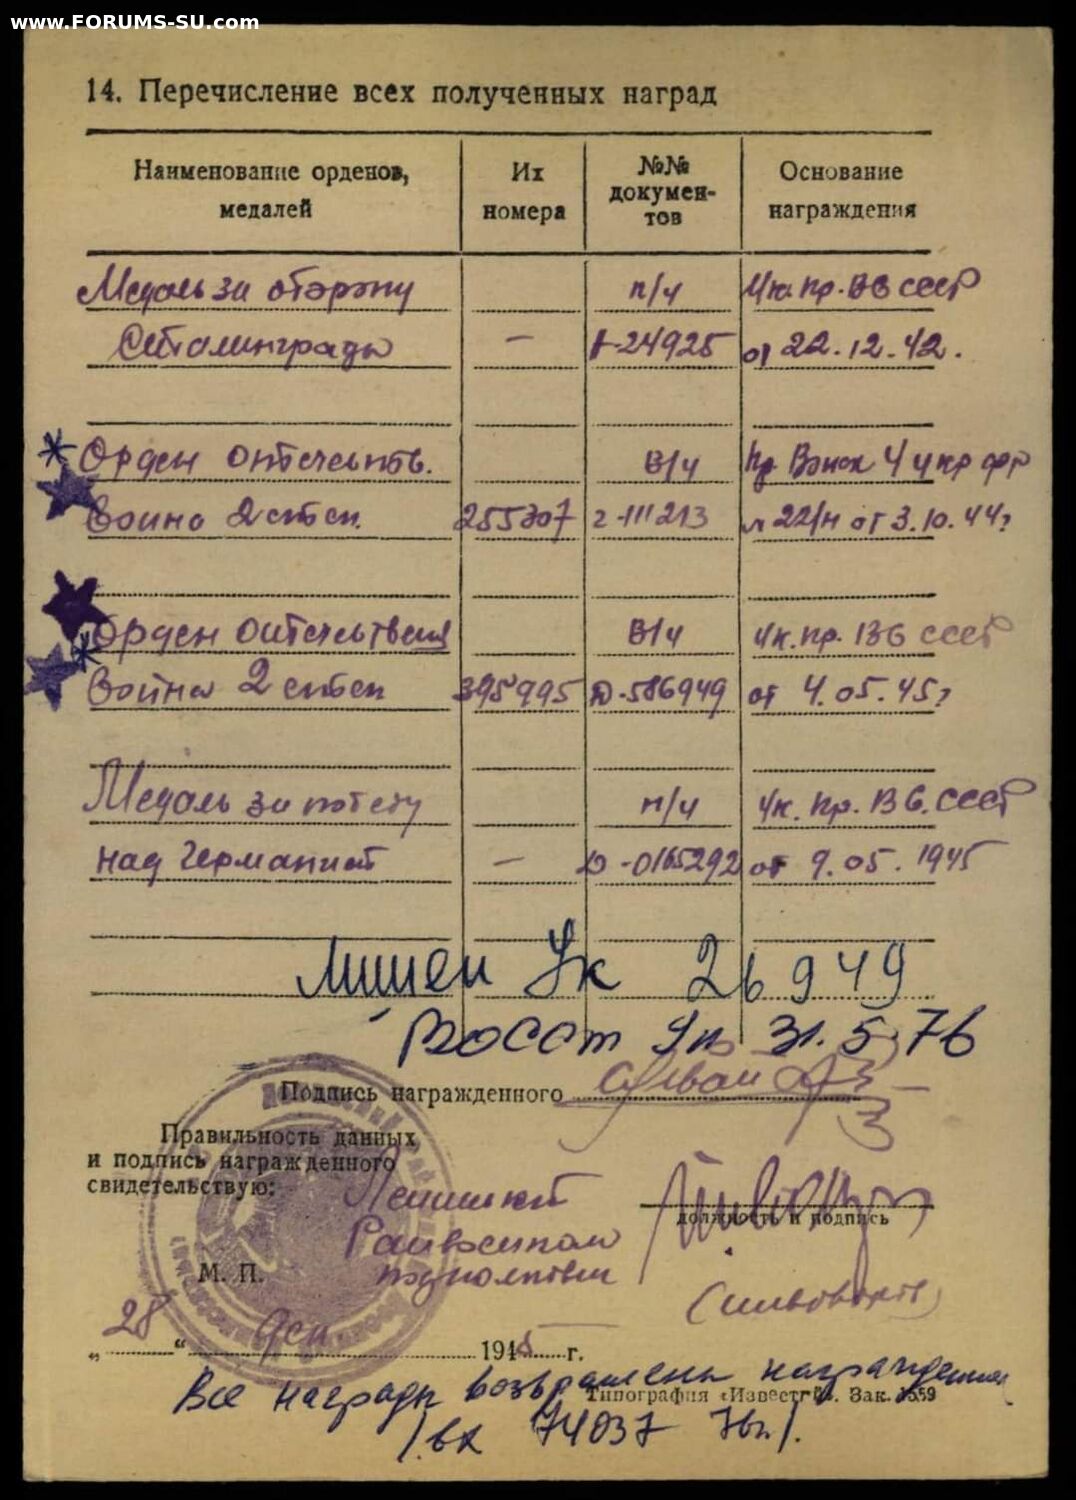 www.FORUMS-SU.com
14. Перечисление всех полученных наград
Наименование орденов, медалей
Их номера
№№ докумен-тов
Основание награждения
Медаль за оборону п/у Ук. пр. ВС СССР
Сталинграда — 24925 от 22.12.42.
Орден отечеств. в/у
войны 2 степ. 255307 г-111213 22/н от 3.10.44г
Орден отечествен в/у Ук. пр. ВС СССР
войны 2 степ 395995 Д-586949 от 4.05.45г
Медаль за победу п/у Ук. пр. ВС СССР
над Германией — Ю-0165292 от 9.05.1945
Лишен Ук 26949
Восст Ук 31.5.76
Подпись награжденного
Правильность данных
и подпись награжденного
свидетельствую:
должность и подпись
подполковник
М. П.
„28“ дек 1945 г.
Все награды возвращены награжденному
Типография «Известий». Зак. 1559
/вх 74037 76г/.